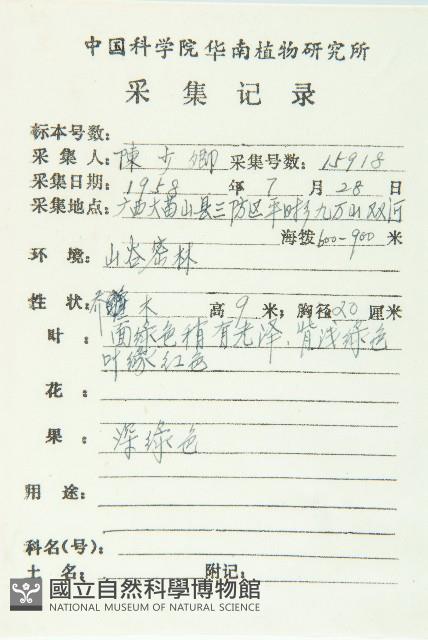 中国科学院华南植物研究所
采集记录
标本号数：
采集人：陳少卿 采集号数：15918
采集日期：1958年7月28日
采集地点：广西大苗山县三防区平时乡九万山双河
海拔600-900米
环境：山谷密林
性状：乔木 高9米；胸径20厘米
叶：面绿色稍有光泽、背浅绿色
叶缘红色
花：
果：深绿色
用途：
科名(号)：
土名： 附记：
國立自然科學博物館
NATIONAL MUSEUM OF NATURAL SCIENCE